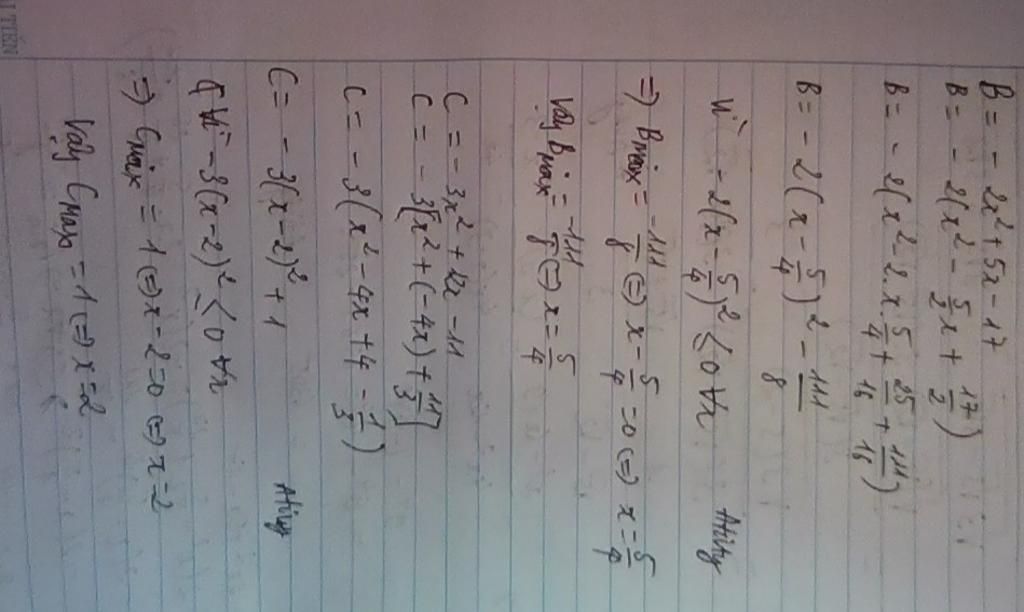 B = - 2x² + 5x - 17
B = - 2(x² - 5/2 x + 17/2)
B = - 2(x² - 2.x.5/4 + 25/16 + 111/16)
B = - 2(x - 5/4)² - 111/8
Vì - 2(x - 5/4)² ≤ 0 ∀x
⇒ Bmax = -111/8 ⇔ x - 5/4 = 0 ⇔ x = 5/4
Vậy Bmax = -111/8 ⇔ x = 5/4
C = - 3x² + 12x - 11
C = - 3[x² + (-4x) + 11/3]
C = - 3(x² - 4x + 4 - 1/3)
C = - 3(x - 2)² + 1
Vì - 3(x - 2)² ≤ 0 ∀x
⇒ Cmax = 1 ⇔ x - 2 = 0 ⇔ x = 2
Vậy Cmax = 1 ⇔ x = 2